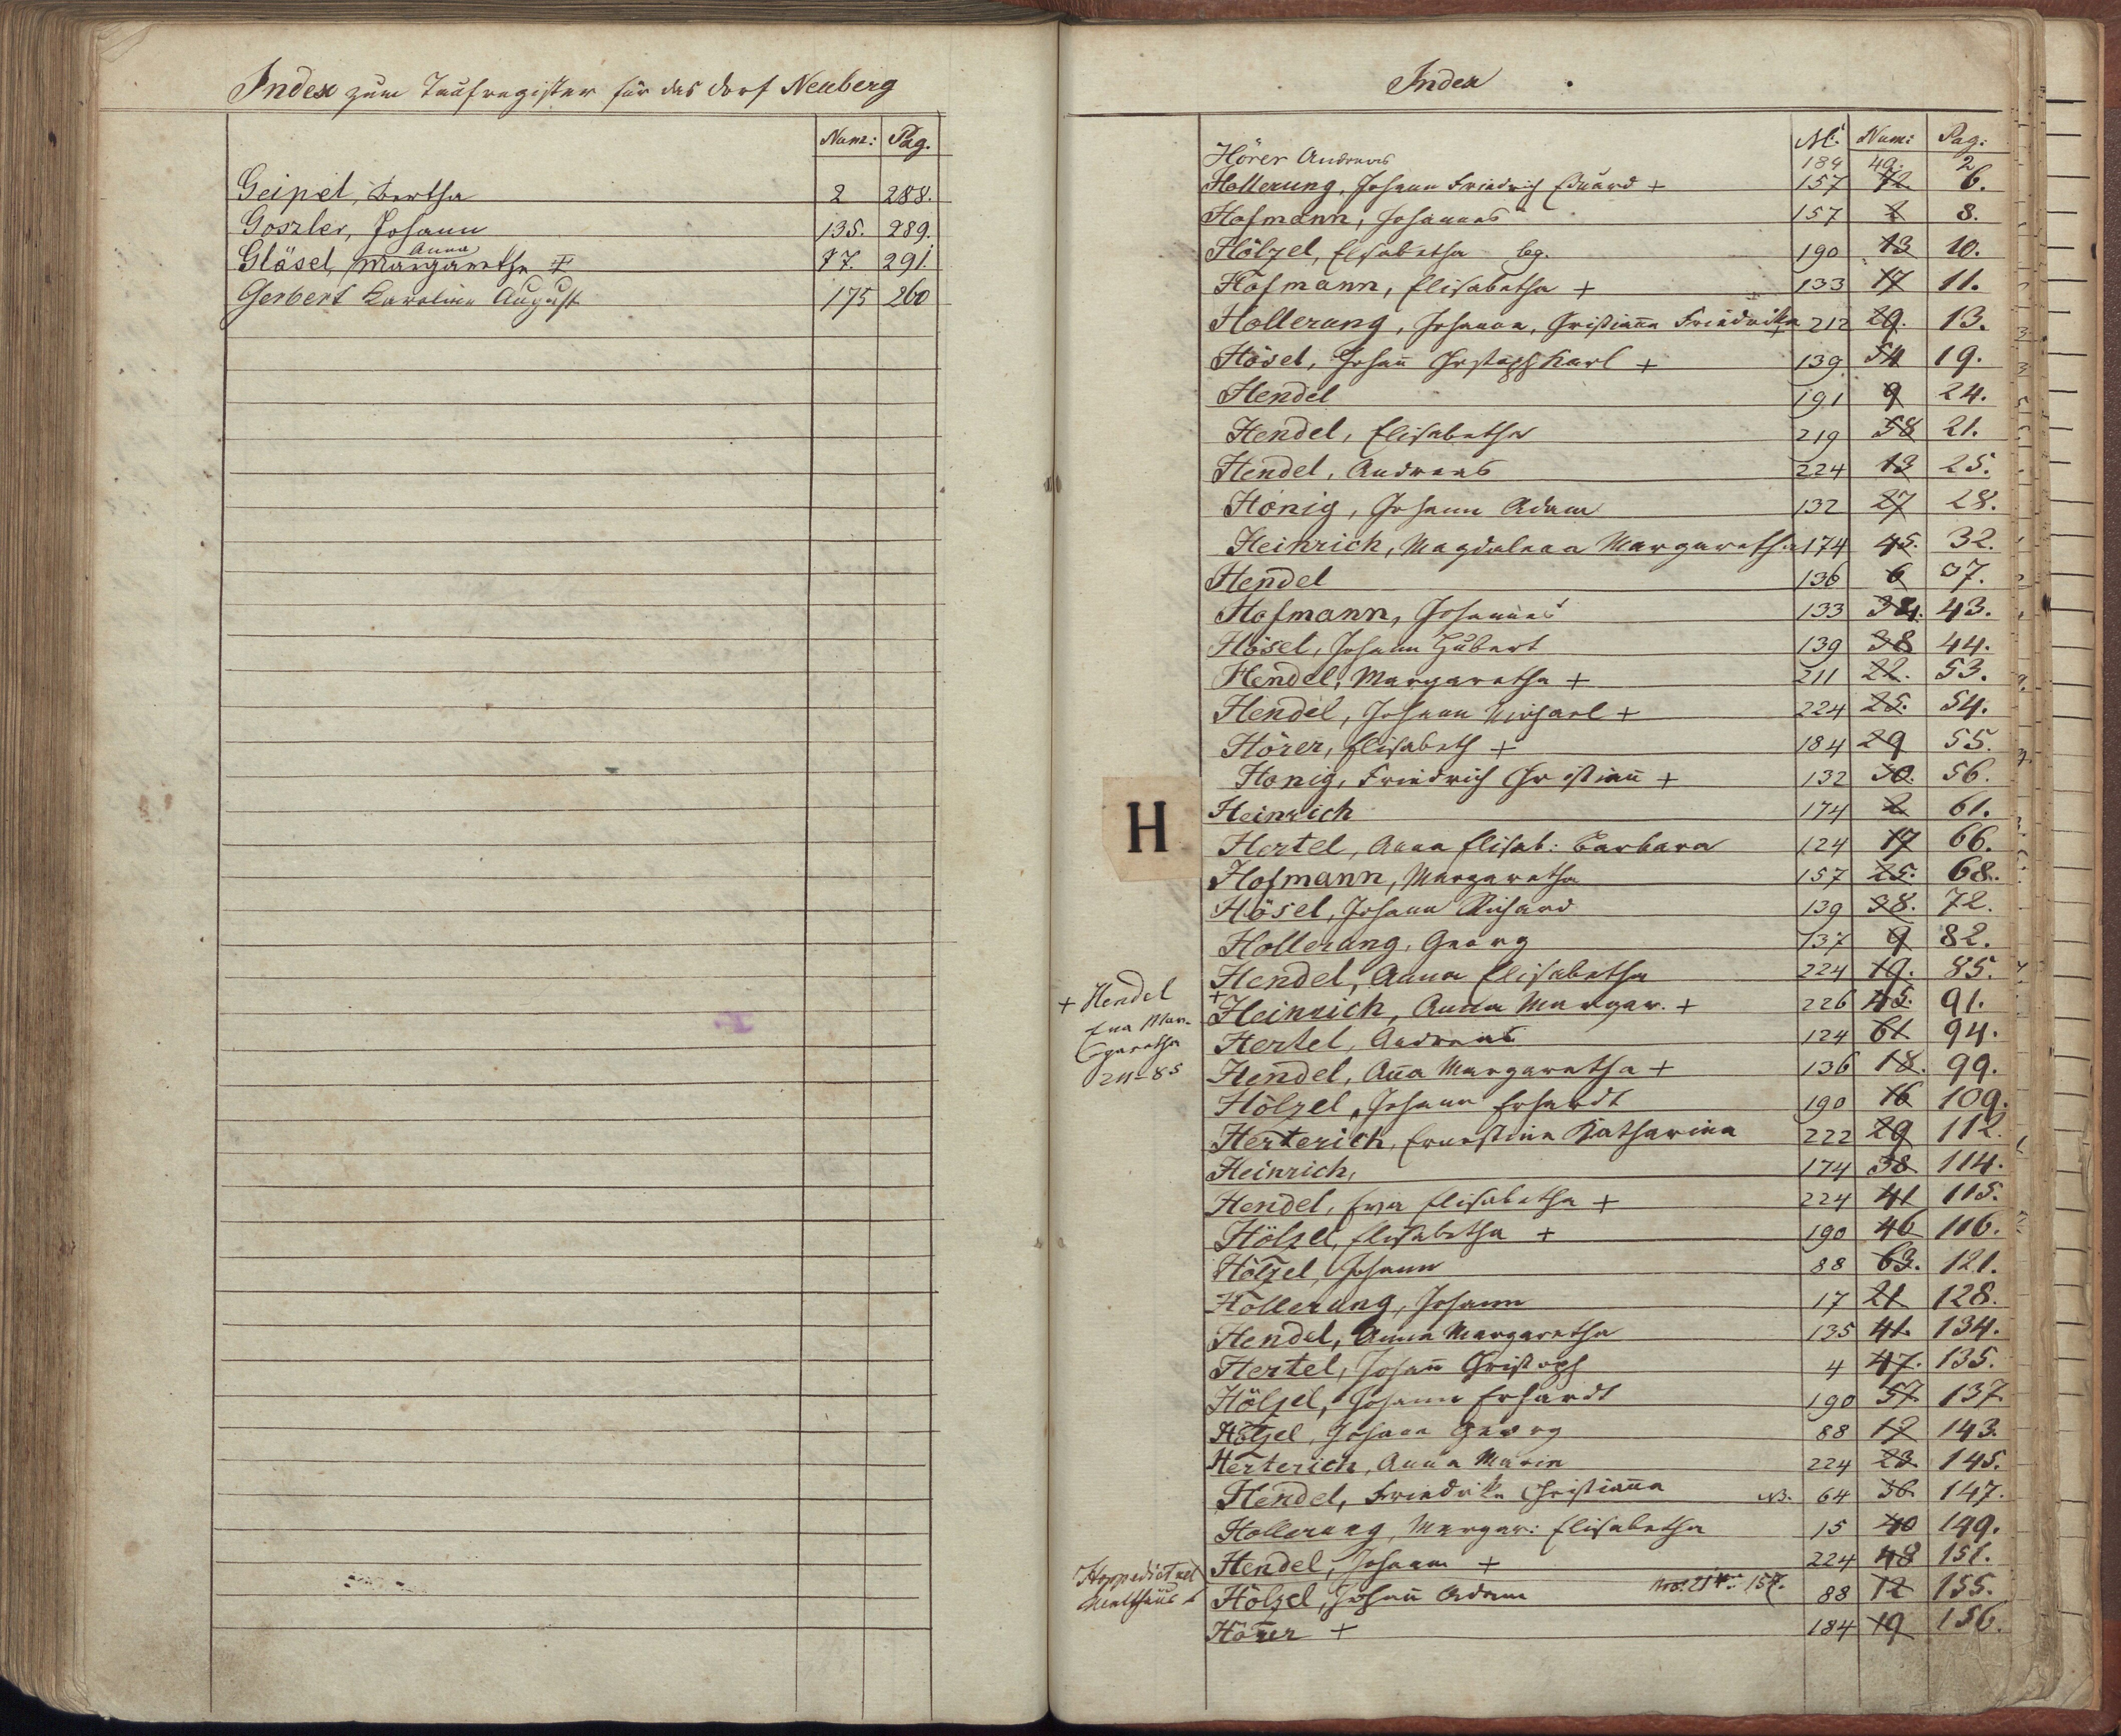 Index zum Taufregister für das Dorf Neuberg
Num: Pag.
Geipel, Bertha 2 288.
Goszler, Johann 135. 289.
Anna
Gläsel, Margaretha + 77. 291.
Gerbert Karolina August 175 260
Index
№ Num: Pag:
Hörer Andreas 184 49. 2
Hollerung, Johann Friedrich Eduard + 157 12 6.
Hofmann, Johannes 157 2 8.
Hölzel, Elisabetha 190 13 10.
Hofmann, Elisabetha + 133 17 11.
Hollerung, Johanna, Christianna Friedrika 212 29. 13.
Hösel, Johañ Christoph Karl + 139 54 19.
Hendel 191 9 24.
Hendel, Elisabetha 219 58 21.
Hendel, Andreas 224 13 25.
Honig, Johann Adam 132 27 28.
Heinrich, Magdalena Margaretha 174 45. 32.
Hendel 136 6 37.
Hofmann, Johannes 133 34. 43.
Hösel, Johann Hubert 139 38 44.
Hendel, Margaretha + 211 22. 53.
Hendel, Johann Michael + 224 25. 54.
Hörer, Elisabeth + 184 29 55.
Honig, Friedrich Christiañ + 132 30. 56.
H
Heinrich 174 2 61.
Hertel, Anna Elisab: Barbara 124 17 66.
Hofmann, Margaretha 157 25. 68.
Hösel, Johann Richard 139 38. 72.
Hollerung, Georg 137 9 82.
Hendel, Anna Elisabetha 224 19. 85.
+ Hendel
Eva Mar-
garetha
211-85
+ Heinrich, Anna Margar. + 226 45. 91.
Hertel, Andreas 124 61 94.
Hendel, Aña Margaretha + 136 18. 99.
Hölzel, Johann Erhardt 190 16 109.
Herterich, Ernestina Katharina 222 29 112.
Heinrich, 174 38 114.
Hendel, Eva Elisabetha + 224 41 115.
Hölzel, Elisabetha + 190 46 116.
Hölzel, Johann 88 63. 121.
Hollerung, Johann 17 21 128.
Hendel, Anna Margaretha 135 41. 134.
Hertel, Johañ Christoph 4 47. 135.
Hölzel, Johann Erhardt 190 57. 137.
Hölzel, Johann Georg 88 12 143.
Herterich, Anna Maria 224 23. 145.
Hendel, Friedrika Christiaña 64 36. 147.
Hollerung, Margar: Elisabetha 15 40 149.
Hendel, Johann + 224 48 151.
Hoppedietzel
Matthäus
Hölzel, Johañ Adam 88 12 155.
Hörer + 184 19 156.